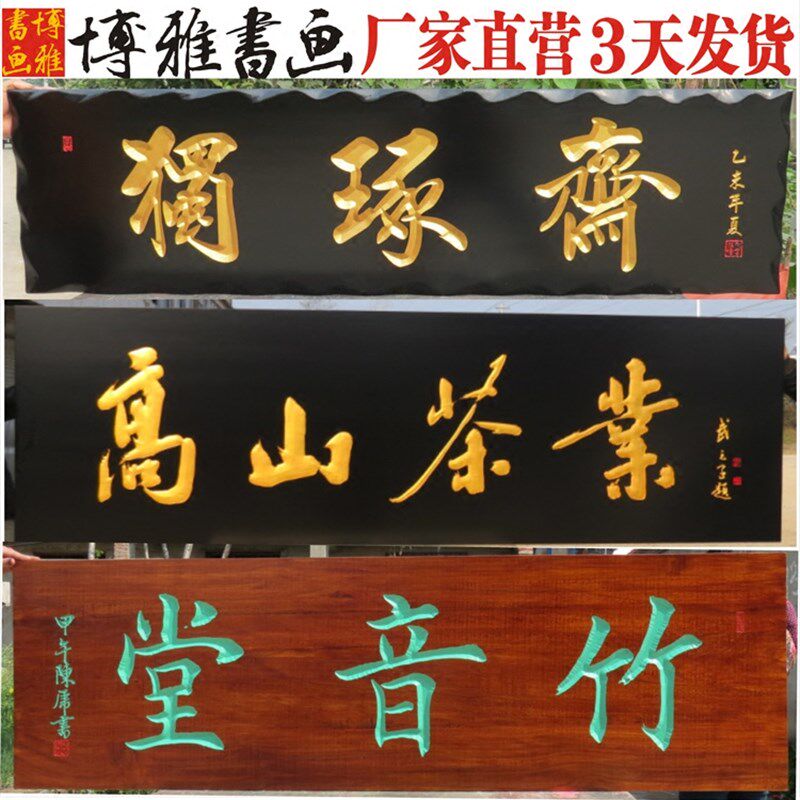 博雅
書画
博雅書画 厂家直营3天发货
獨琢齋
乙未年夏
高山茶業
竹音堂
甲午陳書